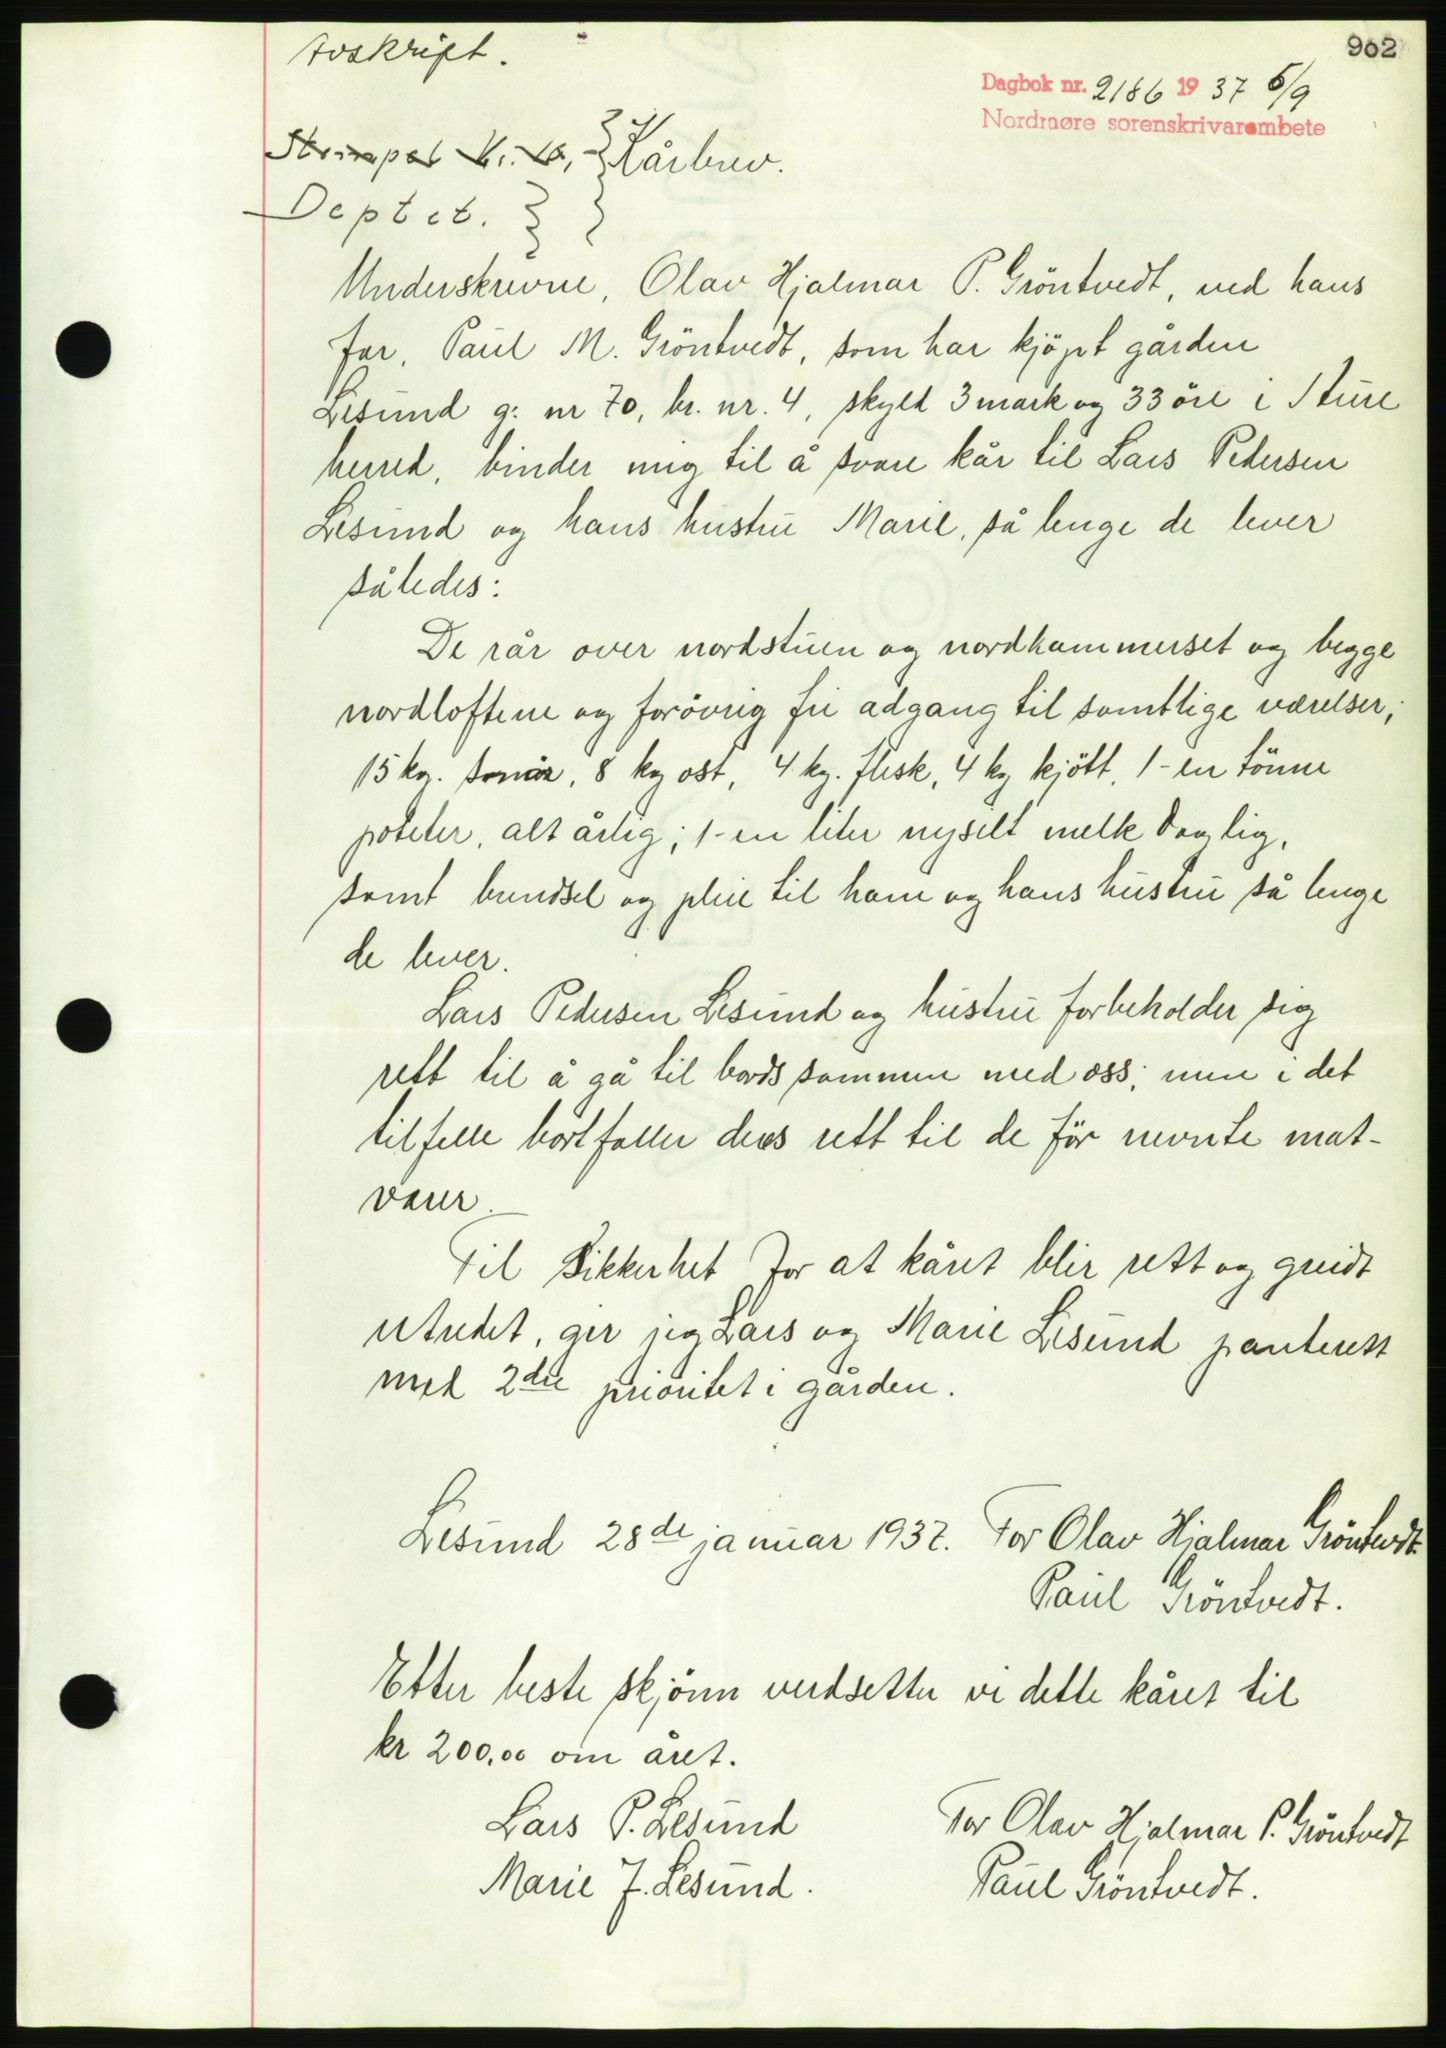 Avskrift.
902
Dagbok nr. 2186 19 37 6/9
Nordmøre sorenskrivarembete
Stempel kr. Kårbrev.
Deptet.
Underskrevne, Olav Hjalmar P. Gröntvedt, ved hans
far, Paul M. Gröntvedt, som har kjöpt gården
Lesund g: nr 70, br. nr. 4, skyld 3 mark og 33 öre i Sture
herred, binder mig til å svare kår til Lars Pedersen
Lesund og hans hustru Marie, så lenge de lever
således:
De rår over nordstuen og nordkammerset og begge
nordloftene og forövrig fri adgang til samtlige værelser;
15 kg. smör, 8 kg ost, 4 kg. flesk, 4 kg kjött, 1-en tönne
poteter, alt årlig; 1-en liter nysilt melk daglig,
samt brendsel og pleie til ham og hans hustru så lenge
de lever.
Lars Pedersen Lesund og hustru forbeholder sig
rett til å gå til bords sammen med oss; men i det
tilfelle bortfaller deres rett til de för nevnte mat-
varer.
Til Sikkerhet for at kåret blir rett og greidt
utredet, gir jeg Lars og Marie Lesund panterett
med 2dre prioritet i gården.
Lesund 28de januar 1937. For Olav Hjalmar Gröntvedt.
Paul Gröntvedt.
Etter beste skjönn verdsetter vi dette kåret til
kr 200,00 om året.
Lars P. Lesund For Olav Hjalmar P. Gröntvedt
Marie J. Lesund. Paul Gröntvedt.